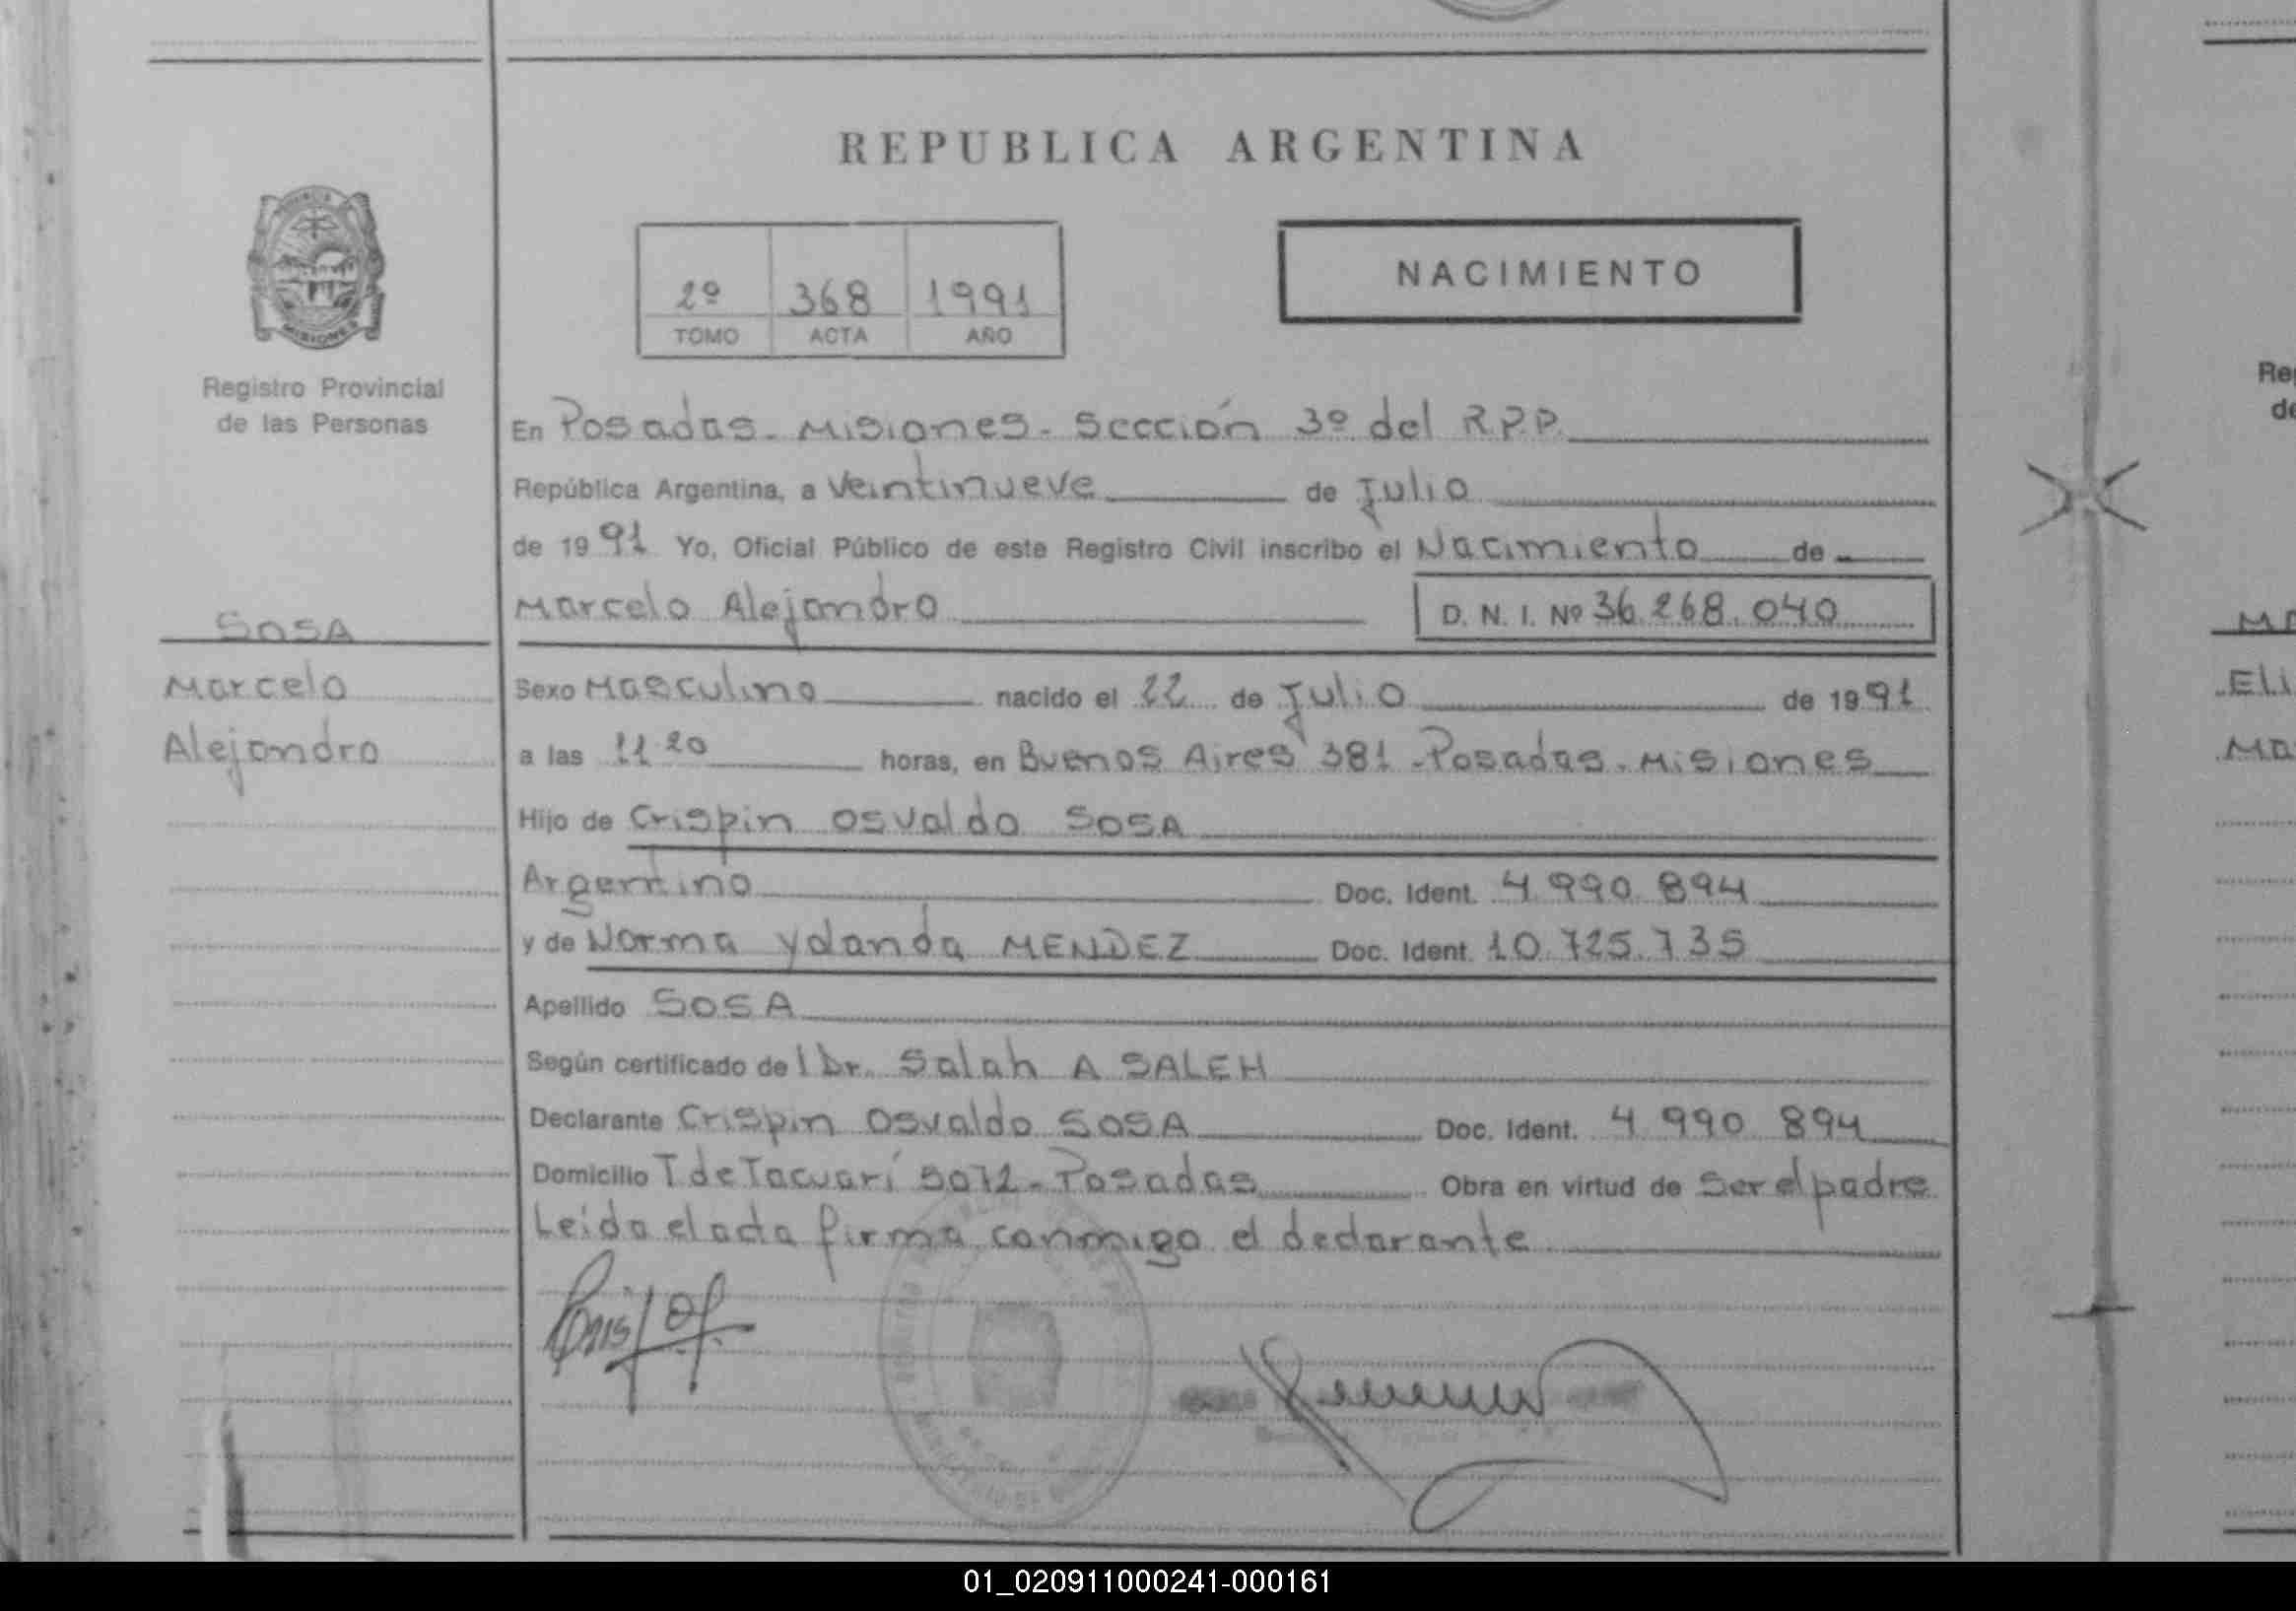 REPUBLICA ARGENTINA
NACIMIENTO
2º 368 1991
TOMO ACTA AÑO
MISIONES
Registro Provincial
de las Personas
SOSA
Marcelo
Alejandro
En Posadas - Misiones - Sección 3º del R.P.P.
República Argentina, a Veintinueve de Julio
de 1991 Yo, Oficial Público de este Registro Civil inscribo el Nacimiento de
Marcelo Alejandro D. N. I. Nº 36.268.040
Sexo Masculino nacido el 22 de Julio de 1991
a las 11.20 horas, en Buenos Aires 381 - Posadas - Misiones
Hijo de Crispin Osvaldo SOSA
Argentino Doc. Ident. 4.990.894
y de Norma Yolanda MENDEZ Doc. Ident. 10.725.735
Apellido SOSA
Según certificado del Dr. Salah A SALEH
Declarante Crispin Osvaldo SOSA Doc. Ident. 4 990 894
Domicilio T de Tacuarí 5072 - Posadas Obra en virtud de Ser el padre
Leída el acta firma conmigo el declarante
Re
de
Eli
Ma
01_020911000241-000161